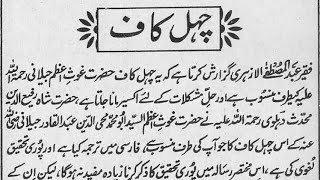 چہل کاف
فقیر عبد المصطفےٰ الازہری گزارش کرتا ہے کہ یہ چہل کاف حضرت غوث اعظم جیلانی رحمۃ اللہ
علیہ کی طرف منسوب ہے اور حل مشکلات کے لئے اکسیر مانا جاتا ہے، حضرت شاہ رفیع الدین
محدث دہلوی رحمۃ اللہ علیہ نے حضرت غوث الاعظم السید ابو محمد محی الدین عبد القادر جیلانی رضی اللہ
عنہ کے اس چہل کاف کا جو آپ کی طرف منسوب ہے، فارسی میں ترجمہ کیا ہے اور پوری تحقیق
لغوی کی ہے اس مختصر رسالہ میں پوری تحقیق کا ذکر کرنا زیادہ مفید نہ ہوگا، لیکن ان کے